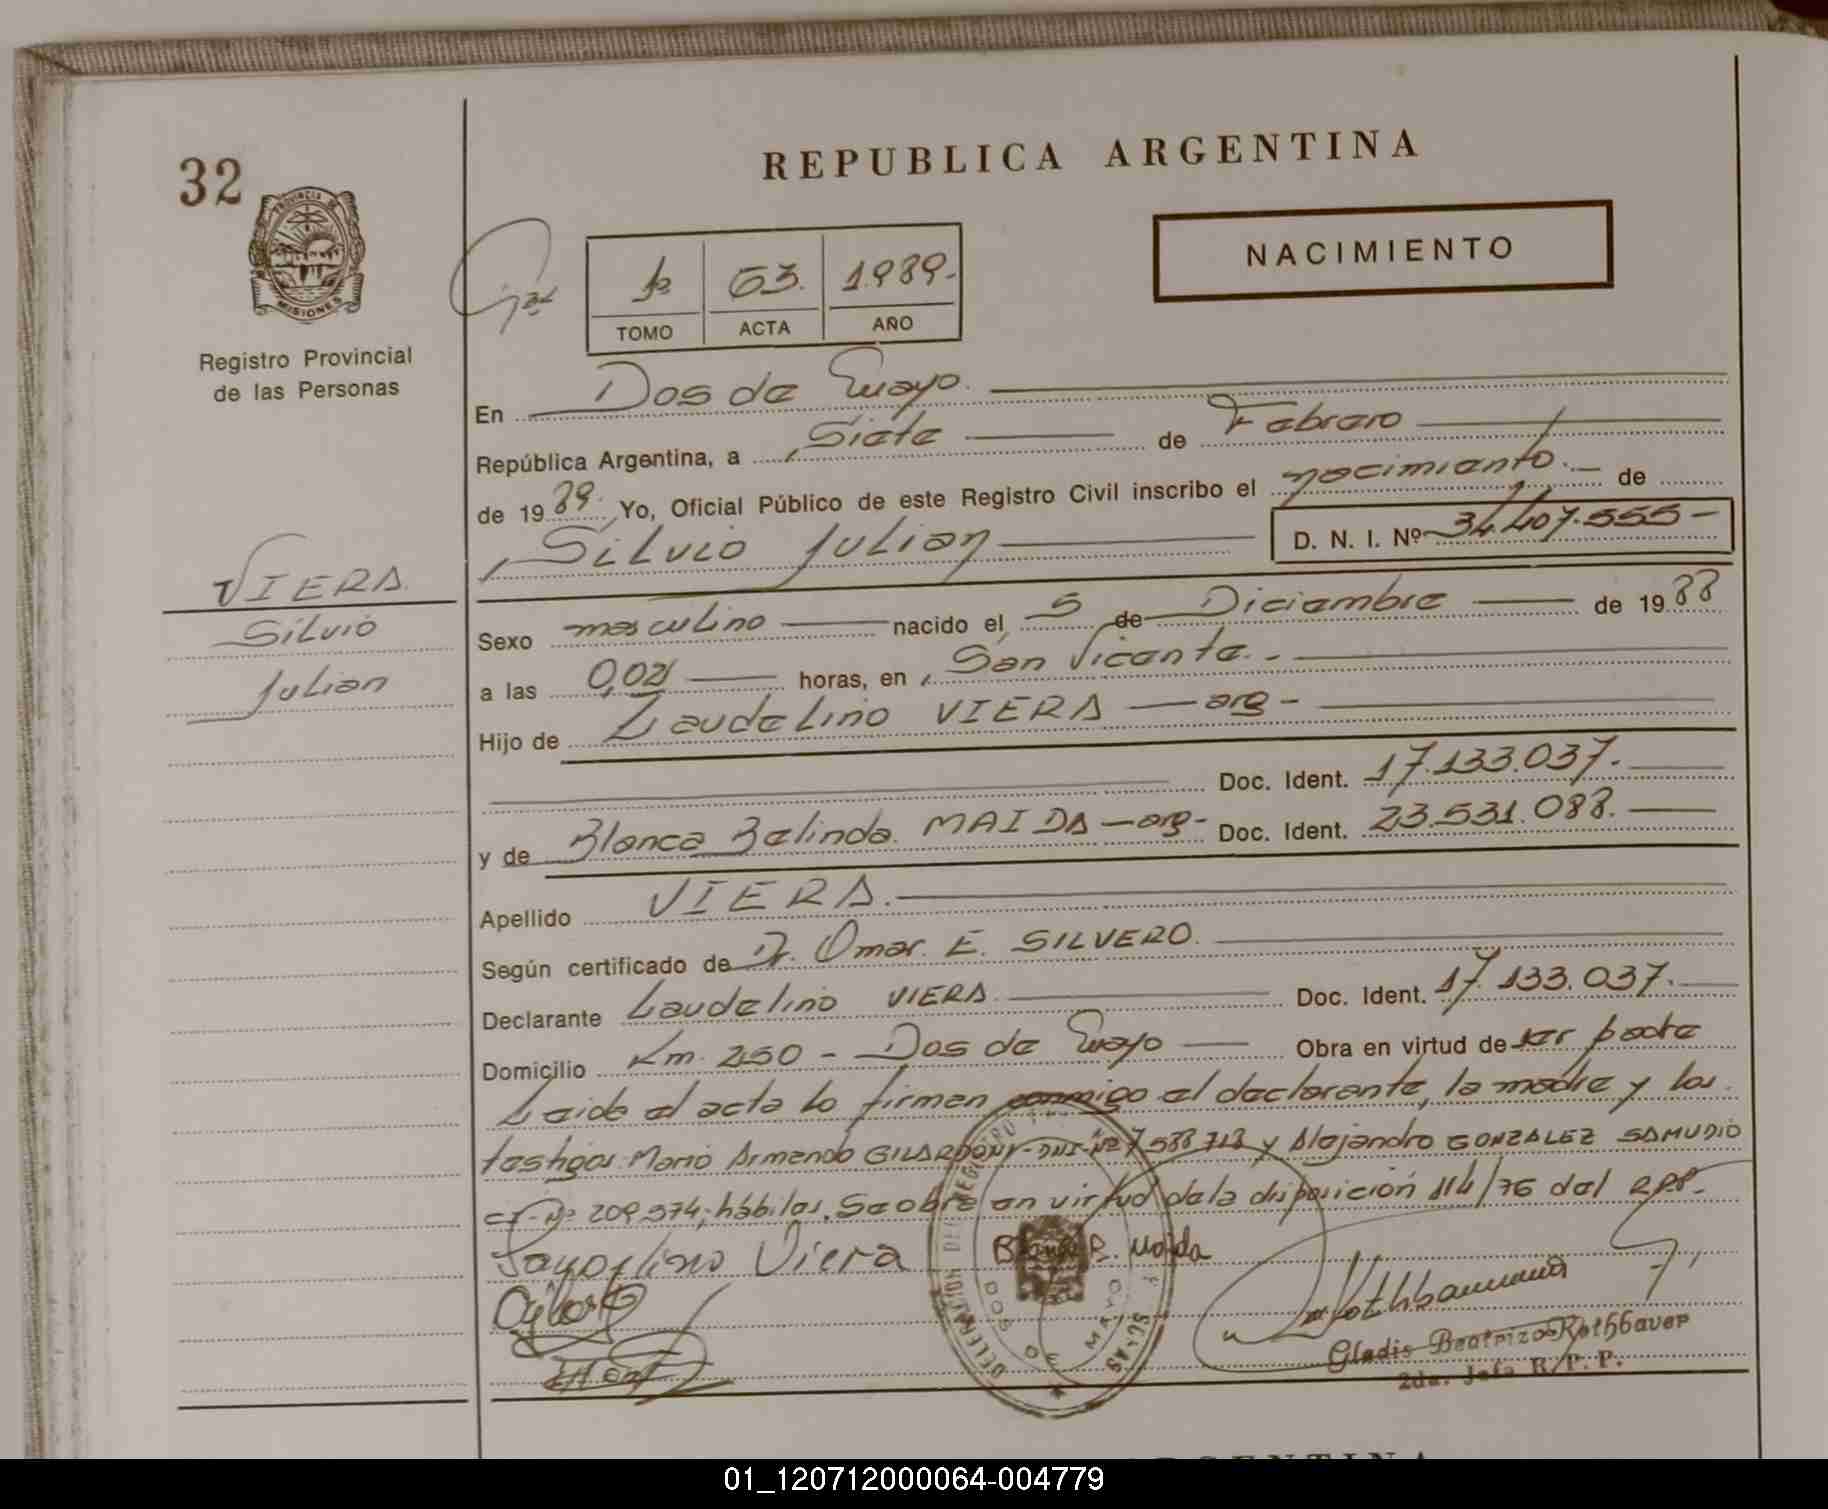 32
REPUBLICA ARGENTINA
PROVINCIA DE
MISIONES
Registro Provincial
de las Personas
NACIMIENTO
1º 63. 1.989.-
TOMO ACTA AÑO
En Dos de Mayo.
República Argentina, a Siete de Febrero
de 1989. Yo, Oficial Público de este Registro Civil inscribo el nacimiento.- de
Silvio Julian D. N. I. Nº 34.407.555-
VIERA.
Silvio
Julian
Sexo masculino nacido el 5 de Diciembre de 1988
a las 0,02 horas, en San Vicente.-
Hijo de Laudelino VIERA - arg -
Doc. Ident. 17.133.037.-
y de Blanca Belinda. MAIDA - arg- Doc. Ident. 23.531.088.
Apellido VIERA.
Según certificado de Dr. Omar. E. SILVERO.
Declarante Laudelino VIERA. Doc. Ident. 17.133.037.
Domicilio Km. 250 - Dos de Mayo Obra en virtud de ser padre
Leida el acta lo firman conmigo el declarante, la madre y los
testigos. Mario Armando GILARDONI-DNI-Nº 7.588.718 y Alejandro GONZALEZ SAMUDIO
CI-Nº 209.974, hábiles. Se obra en virtud de la disposición 114/76 del RPP.
Viera
Blanca B. Maida
DOS DE MAYO
Gladis Beatriz Rothbauer
2da. Jefa R. P. P.
01_120712000064-004779